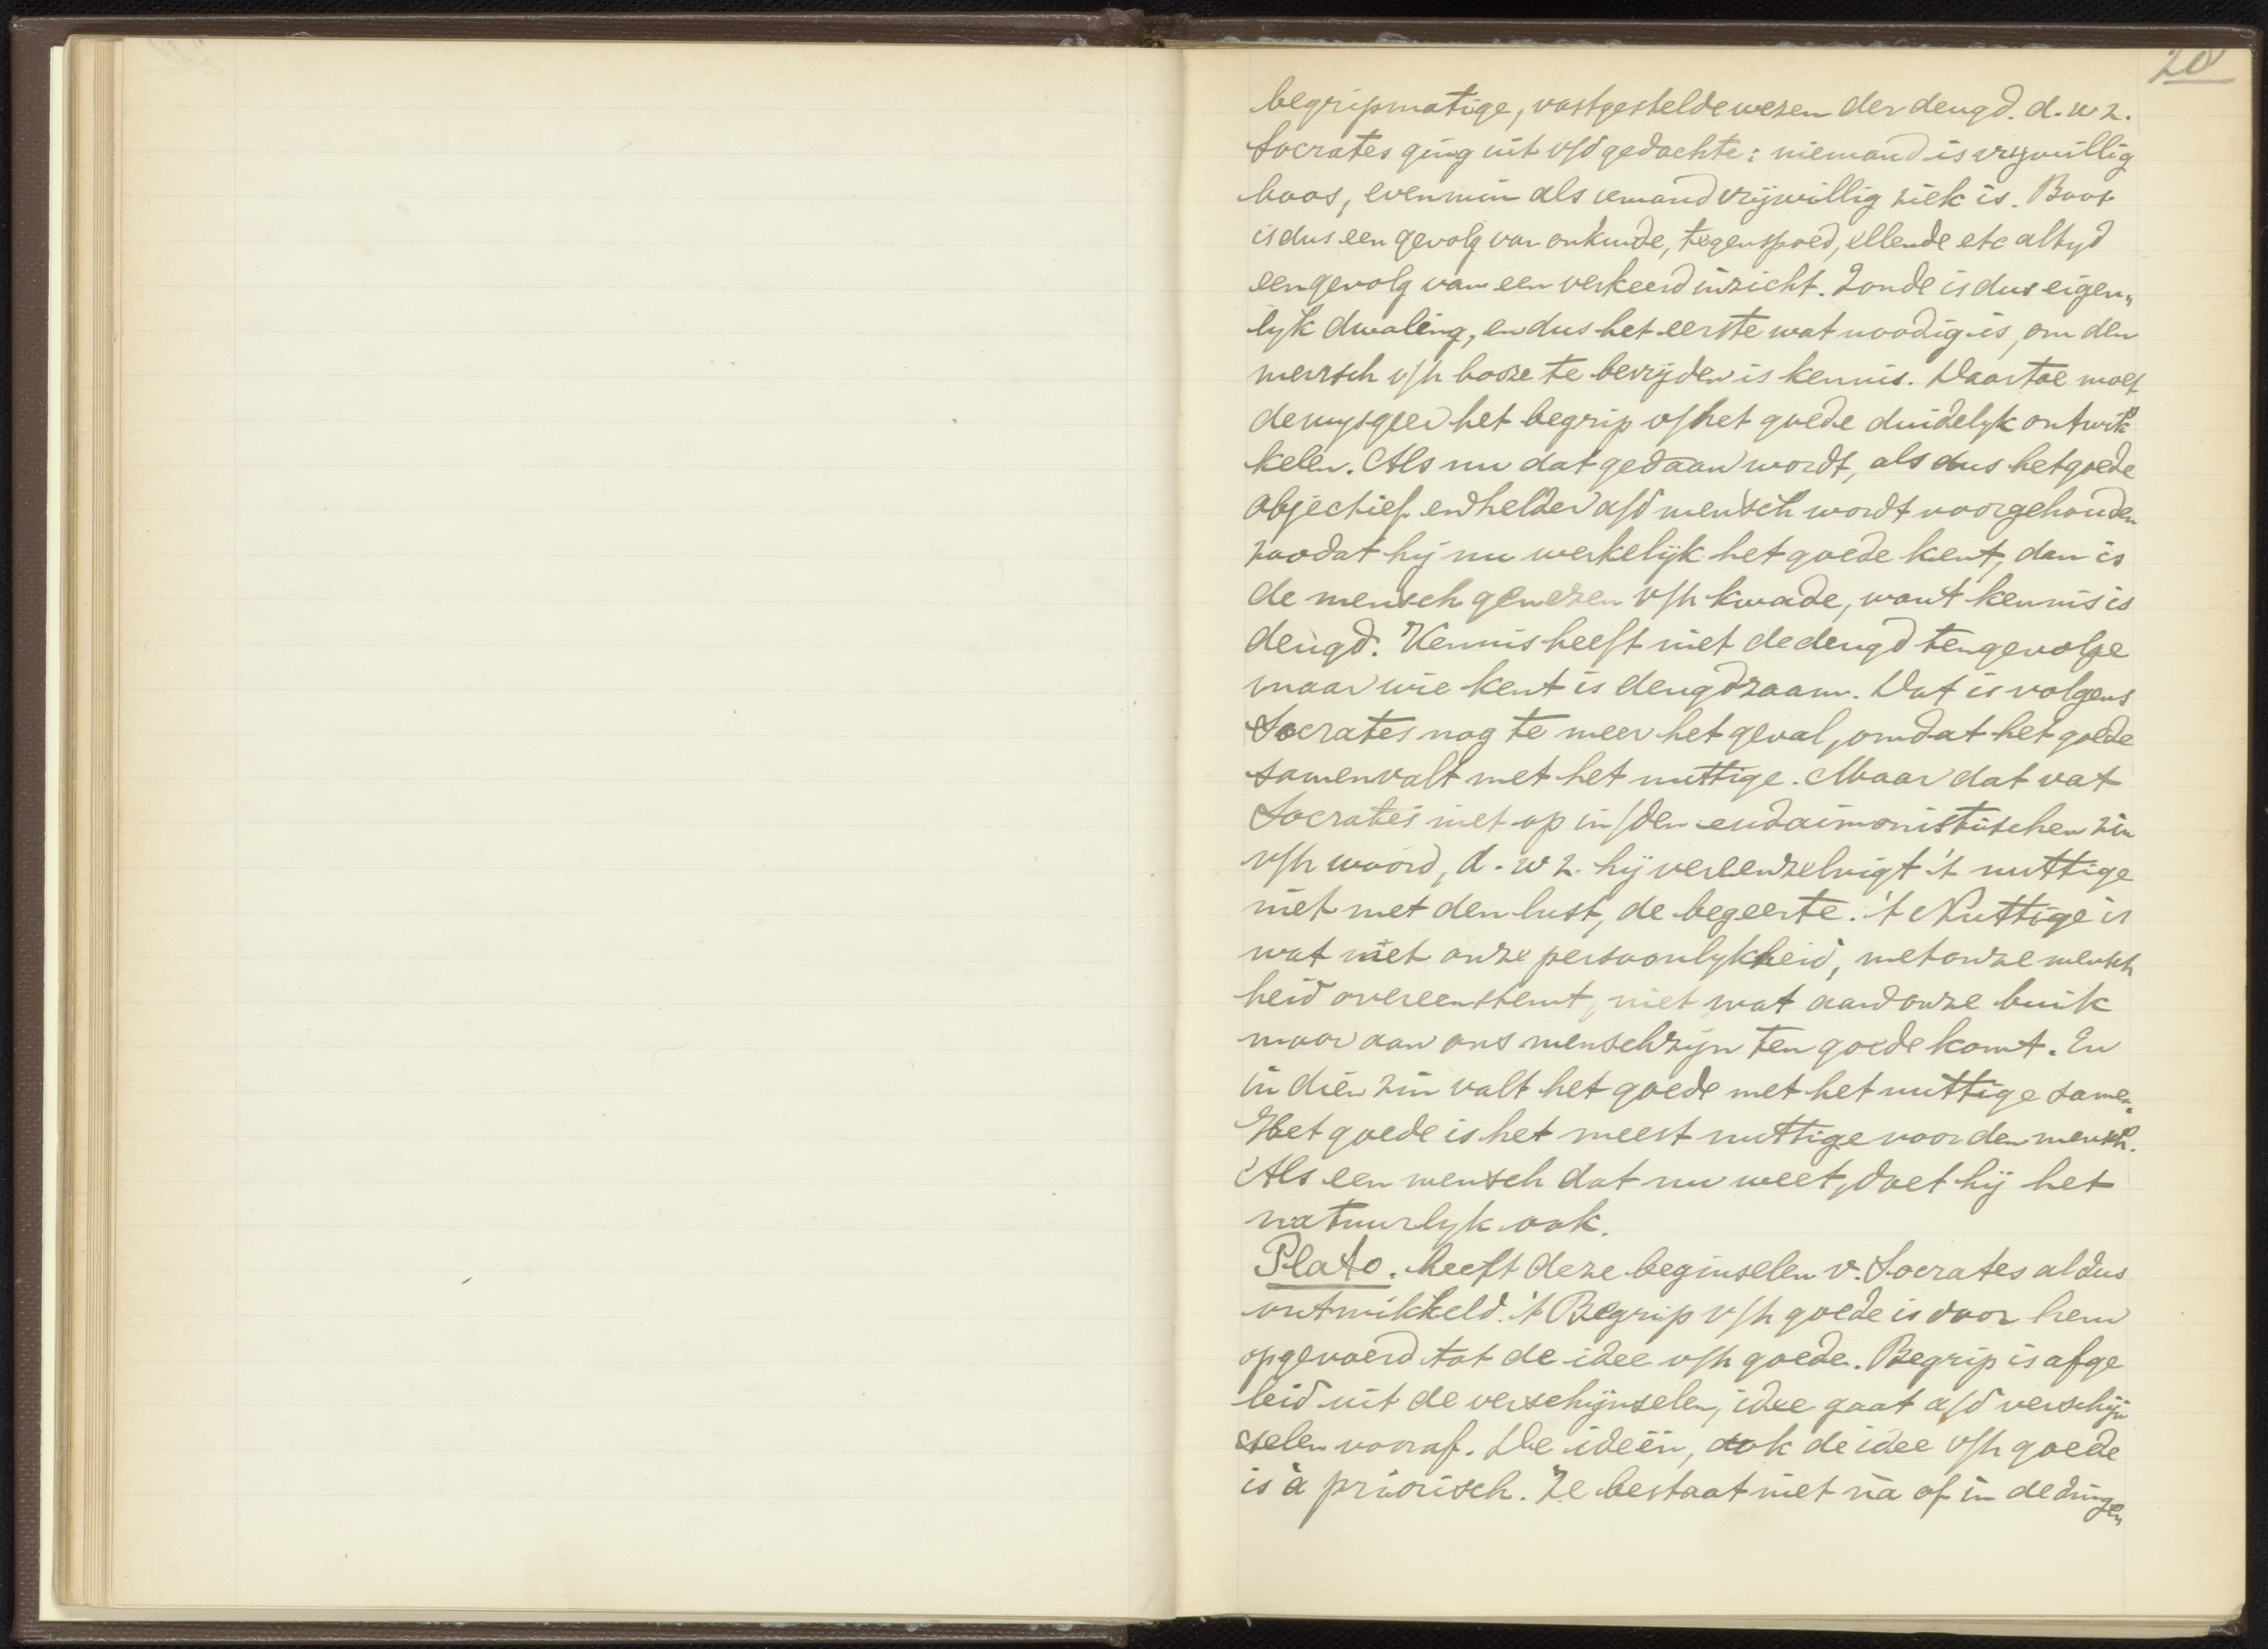 20
begripmatige, vastgestelde wezen der deugd. d.w z.
Socrates ging uit v/d gedachte: niemand is vrywillig
boos, evenmin als iemand vrijwillig ziek is. Boos
is dus een gevolg van onkunde, tegenspoed, ellende etc altyd
een gevolg van een verkeerd inzicht. Zonde is dus eigen„
lyk dwaling, en dus het eerste wat noodig is, om den
mensch v/h booze te bevrijden is kennis. Daartoe moet
de wysgeer het begrip v/het goede duidelyk ontwik
kelen. Als nu dat gedaan wordt, als dus het goede
objectief en helder a/d mensch wordt voorgehouden
zoodat hij nu werkelijk het goede kent, dan is
de mensch genezen v/h kwade, want kennis is
deugd. Kennis heeft niet de deugd tengevolge
maar wie kent is deugdzaam. Dat is volgens
Socrates nog te meer het geval, omdat het goede
samenvalt met het nuttige. Maar dat vat
Socrates niet op in/den eudaimonistischen zin
v/h woord, d.w z. hij vereenzelvigt 't nuttige
niet met den lust, de begeerte. 't Nuttige is
wat met onze persoonlykheid, met onze mensch
heid overeenstemt, niet wat aan onze buik
maar aan ons menschzijn ten goede komt. En
in dien zin valt het goede met het nuttige samen.
Het goede is het meest nuttige voor den mensch.
Als een mensch dat nu weet, doet hij het
natuurlyk ook.
Plato. heeft deze beginselen v. Socrates aldus
ontwikkeld. 't Begrip v/h goede is door hem
opgevoerd tot de idee v/h goede. Begrip is afge
leid uit de verschijnselen, idee gaat a/d verschijn
selen vooraf. De ideën, ook de idee v/h goede
is à priorisch. Ze bestaat niet na of in de dingen